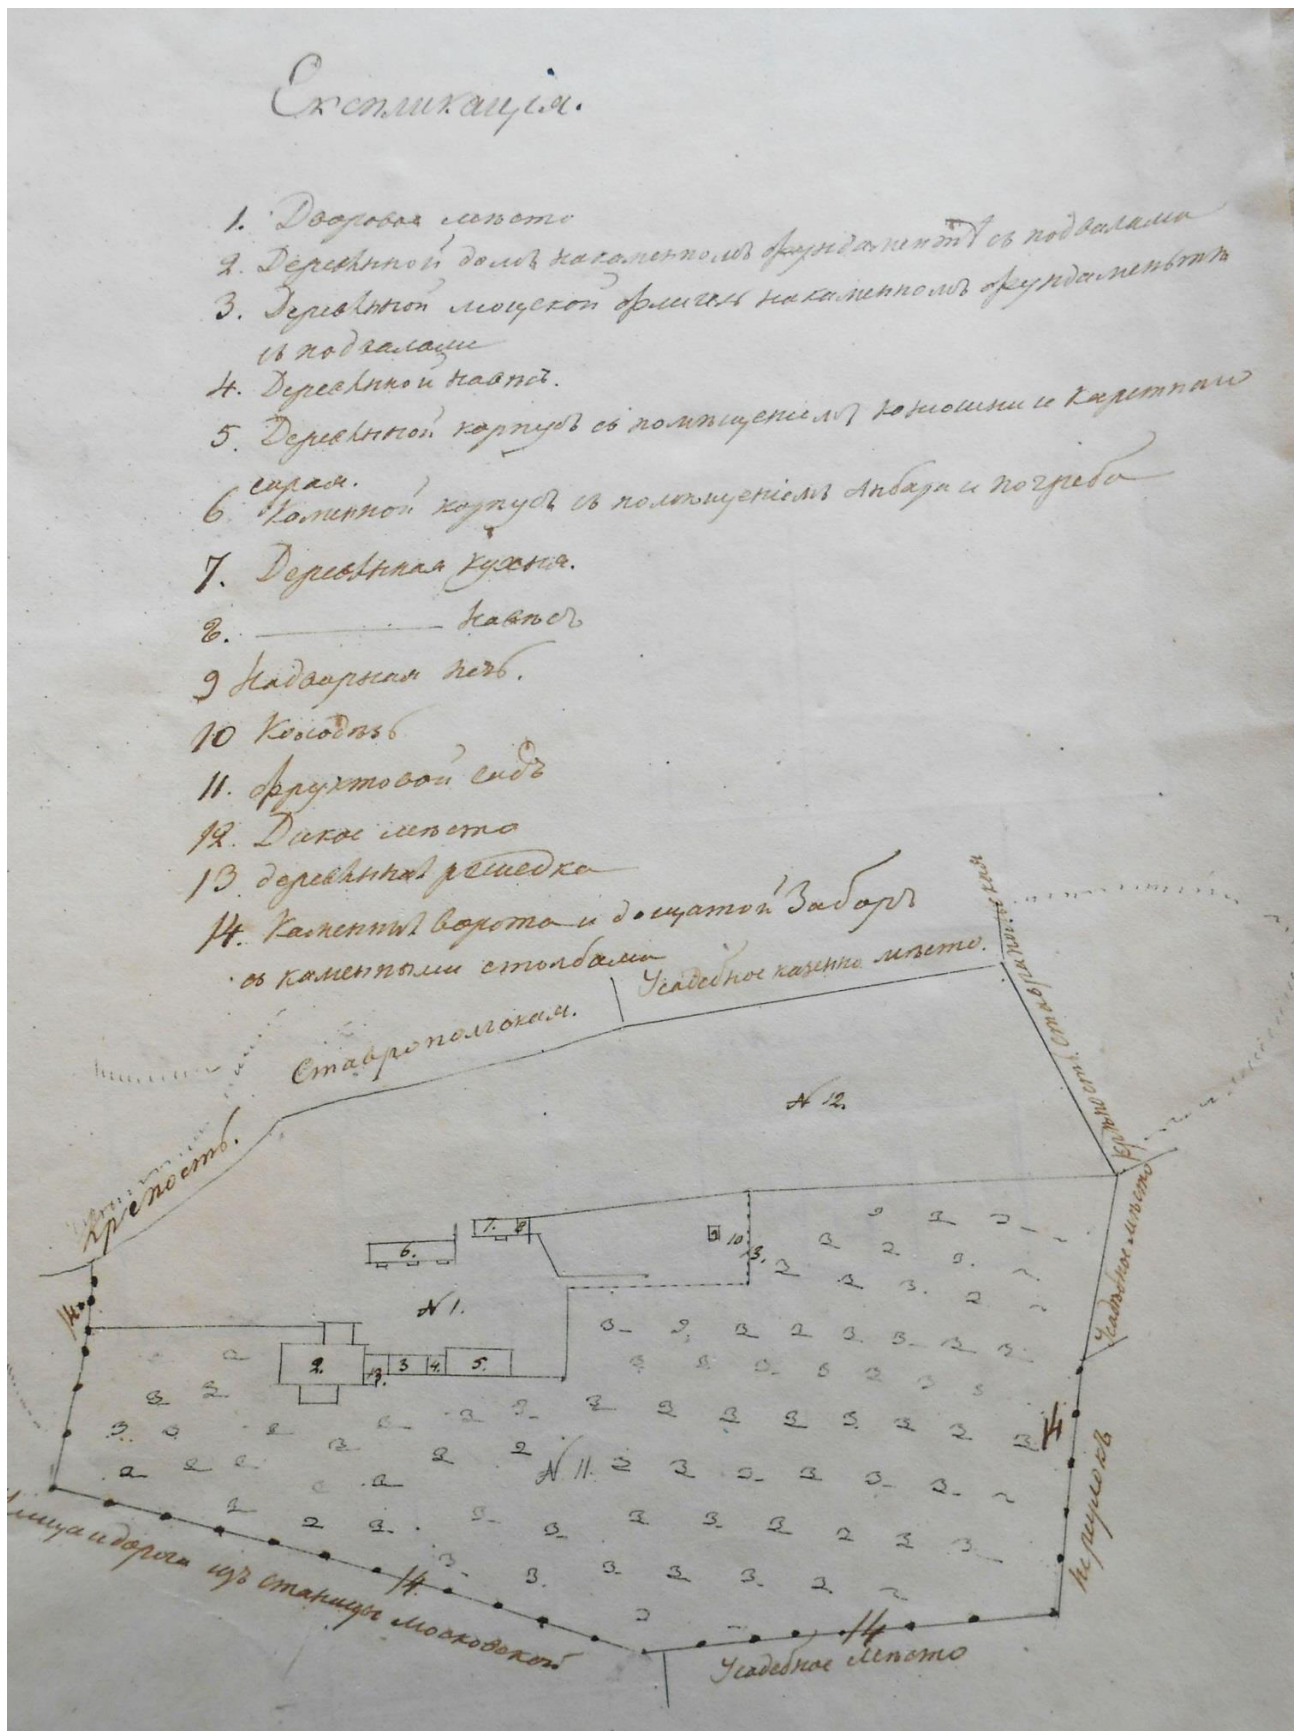 Експликація.
1. Дворовое мѣсто
2. Деревянной домъ на каменномъ фундаментѣ съ подвалами
3. Деревянной флигель на каменномъ фундаментѣ
съ подвалами
4. Деревянной навѣсъ.
5. Деревянной корпусъ съ помѣщеніемъ конюшни и каретнаго
сарая.
6 Каменной корпусъ съ помѣщеніемъ Анбара и погреба
7. Деревянная кухня.
8. ——— навѣсъ
9 Надворная печь.
10 Колодязь
11. фруктовой садъ
12. Дикое мѣсто
13 деревянная решедка
14. Каменные ворота и дощатой Заборъ
съ каменными столбами
Усадебное казенно мѣсто.
Ставропольская.
Крѣпость Ставропольская
N 12.
Крепость.
7. 8
9
10
13.
6.
Усадебное мѣсто
N 1.
14
2.
13.
3
4.
5.
14
N 11.
переулокъ
Улица и дорога изъ станицы московской
14
14
Усадебное мѣсто